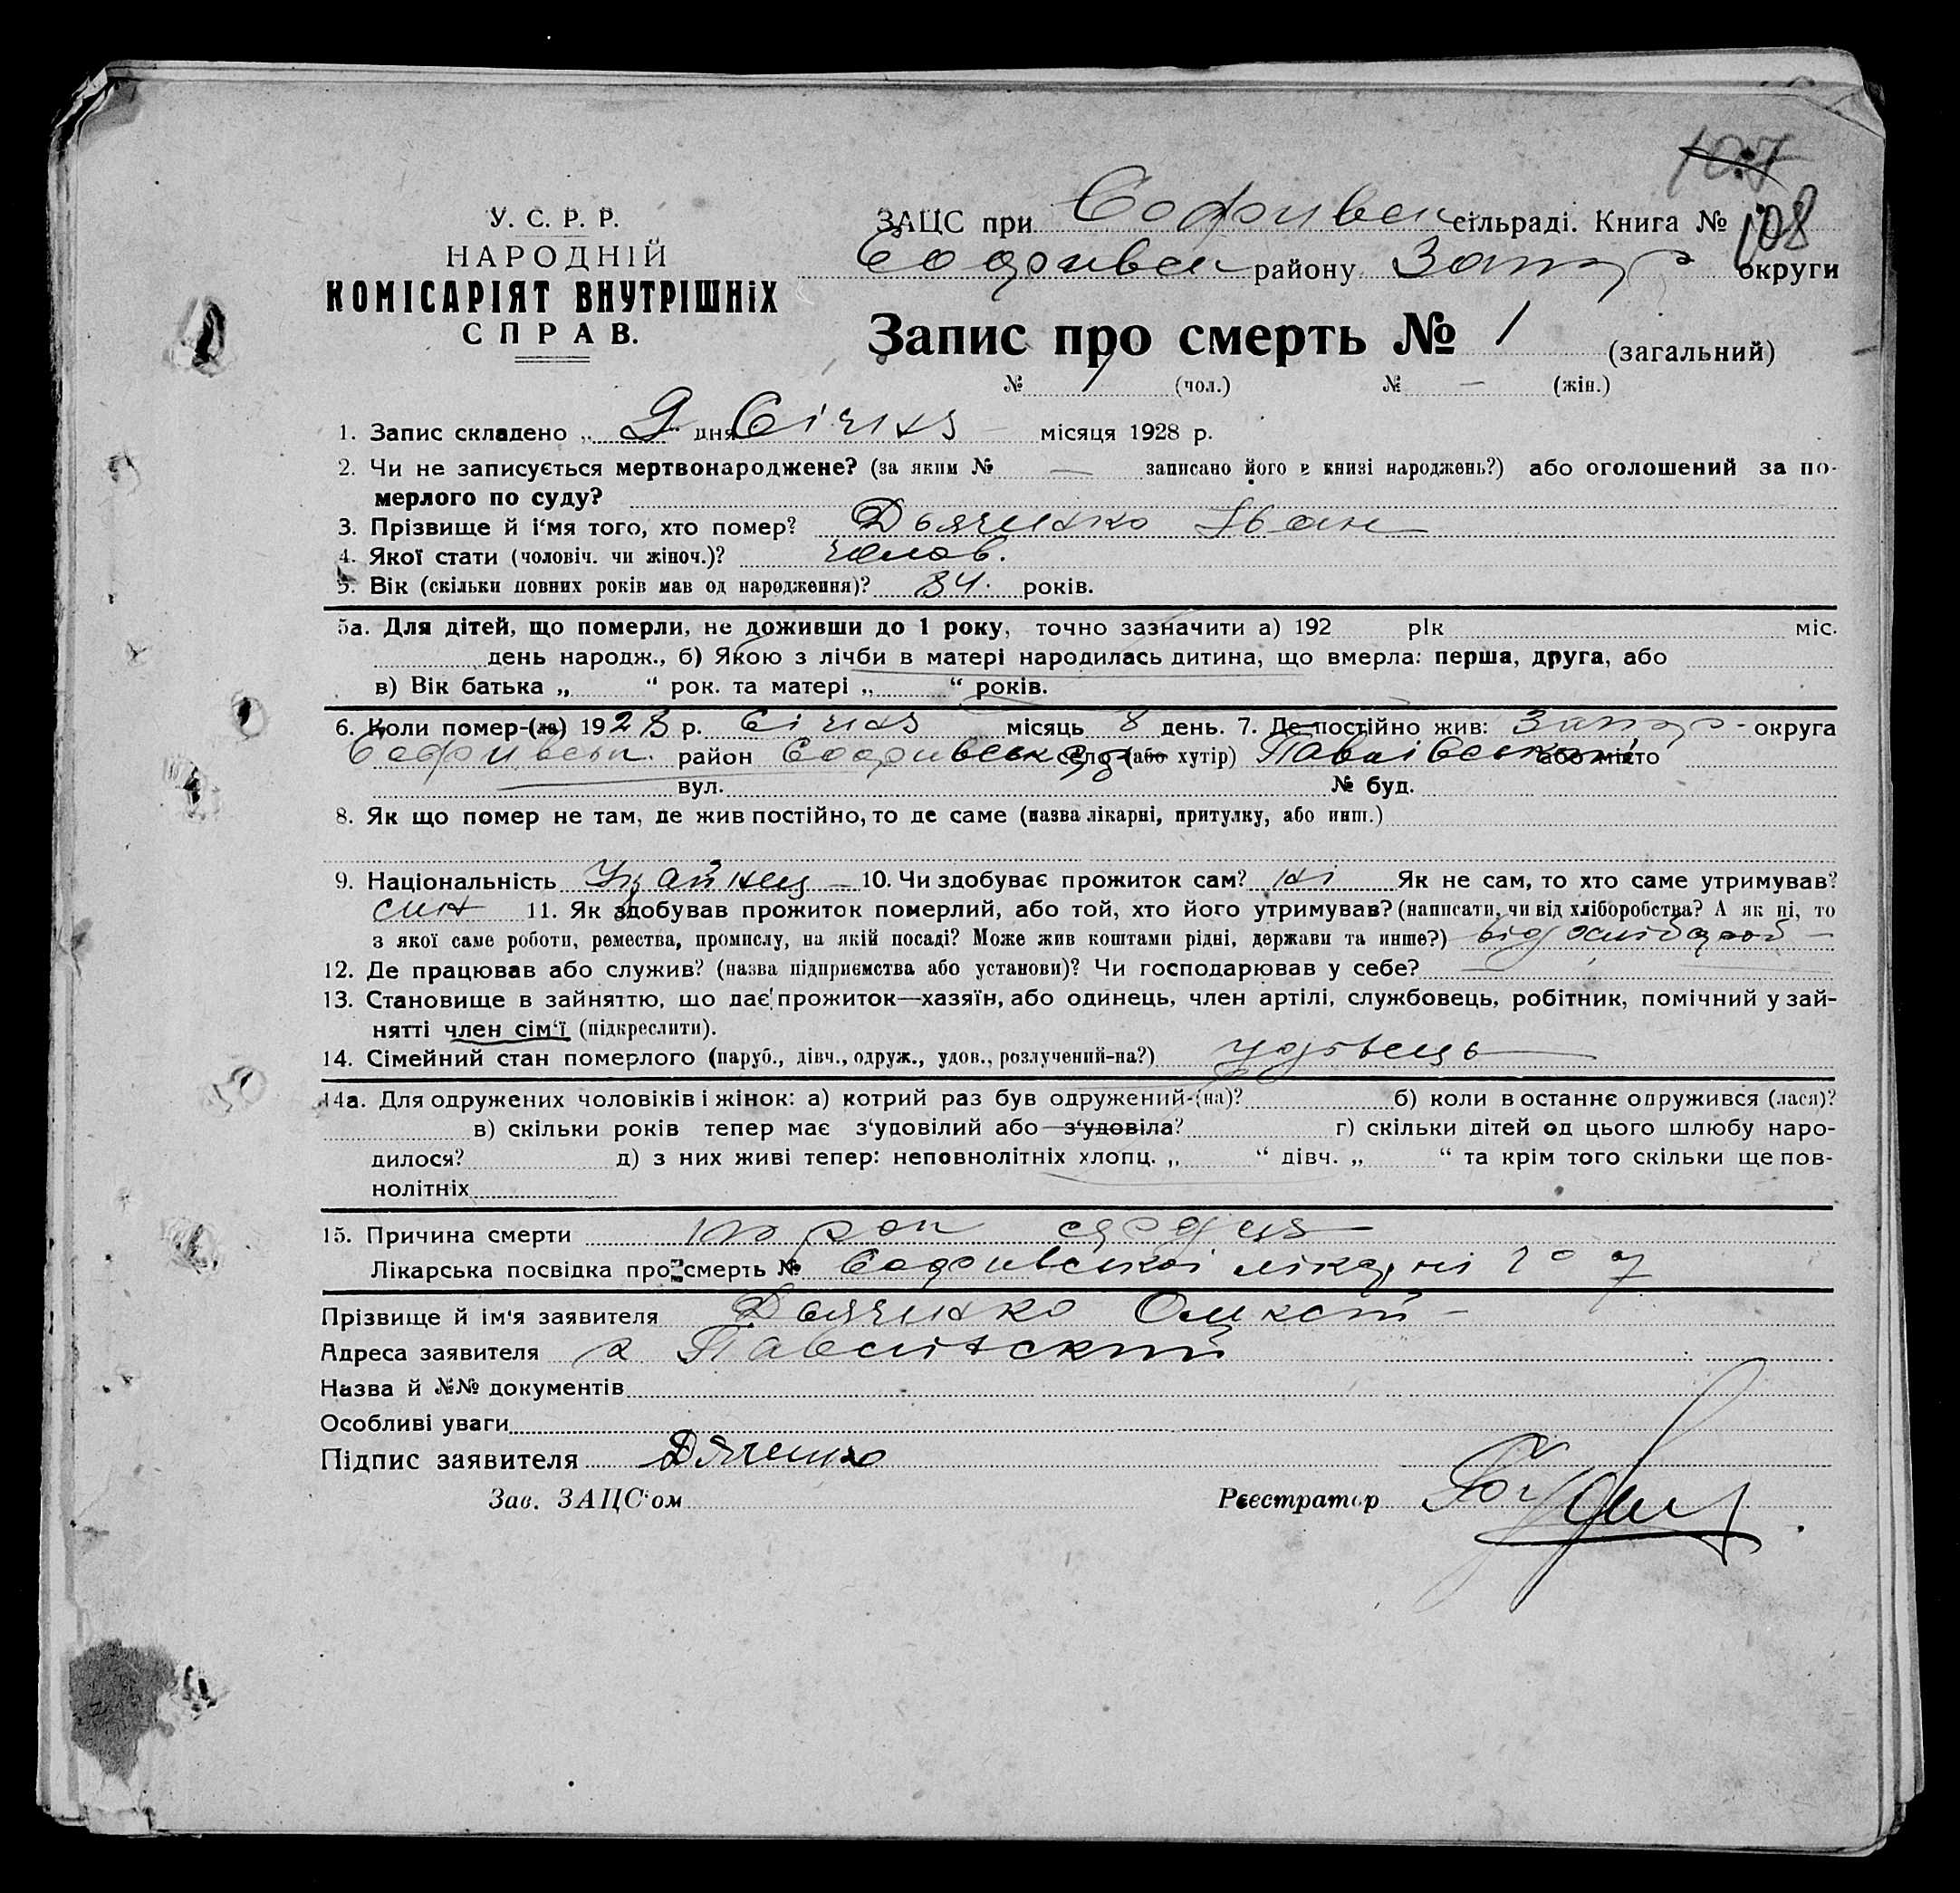 107
У. С. Р. Р.
НАРОДНІЙ
КОМІСАРІЯТ ВНУТРІШНіХ
СПРАВ.
ЗАЦС при Софиївск сільраді. Книга № 108
Софиївск району Запор округи
Запис про смерть № 1 (загальний)
№ 1 (чол.) № — (жін.)
1. Запис складено „ 9 " дня Січня місяця 1928 р.
2. Чи не записується мертвонароджене? (за яким № — записано його в книзі народжень?) або оголошений за по-
мерлого по суду?
3. Прізвище й і'мя того, хто помер? Дьяченко Іван
4. Якої стати (чоловіч. чи жіноч.)? чолов.
5. Вік (скільки повних років мав од народження)? 84. років.
5а. Для дітей, що померли, не доживши до 1 року, точно зазначити а) 192 рік міс.
день народж., б) Якою з лічби в матері народилась дитина, що вмерла: перша, друга, або
в) Вік батька „ " рок. та матері „ " років.
6. Коли помер-(ла) 1928 р. Січня місяць 8 день. 7. Де постійно жив: Запор - округа
Софиївськ. район Софиївськ село (або хутір) Павлівський або місто
вул. № буд.
8. Як що помер не там, де жив постійно, то де саме (назва лікарні, притулку, або инш.)
9. Національність Украйнец — 10. Чи здобуває прожиток сам? ні Як не сам, то хто саме утримував?
син 11. Як здобував прожиток померлий, або той, хто його утримував? (написати, чи від хліборобства? А як ні, то
з якої саме роботи, ремества, промислу, на якій посаді? Може жив коштами рідні, держави та инше?) від
12. Де працював або служив? (назва підприємства або установи)? Чи господарював у себе? —
13. Становище в зайняттю, що дає прожиток—хазяїн, або одинець, член артілі, службовець, робітник, помічний у зай-
нятті член сім'ї (підкреслити).
14. Сімейний стан померлого (паруб., дівч., одруж., удов., розлучений-на?) удівець
14а. Для одружених чоловіків і жінок: а) котрий раз був одружений-(на)? б) коли в останнє одружився (лася)?
в) скільки років тепер має з'удовілий або з'удовіла? г) скільки дітей од цього шлюбу наро-
дилося? д) з них живі тепер: неповнолітніх хлопц. „ " дівч. „ " та крім того скільки ще пов-
нолітніх
15. Причина смерти порок сердця
Лікарська посвідка про смерть № Софиївської лікарні
Прізвище й ім'я заявителя Дьяченко Олксій
Адреса заявителя х Павлівский
Назва й №№ документів
Особливі уваги
Підпис заявителя Дяченко
Зав. ЗАЦС'ом Реєстратор